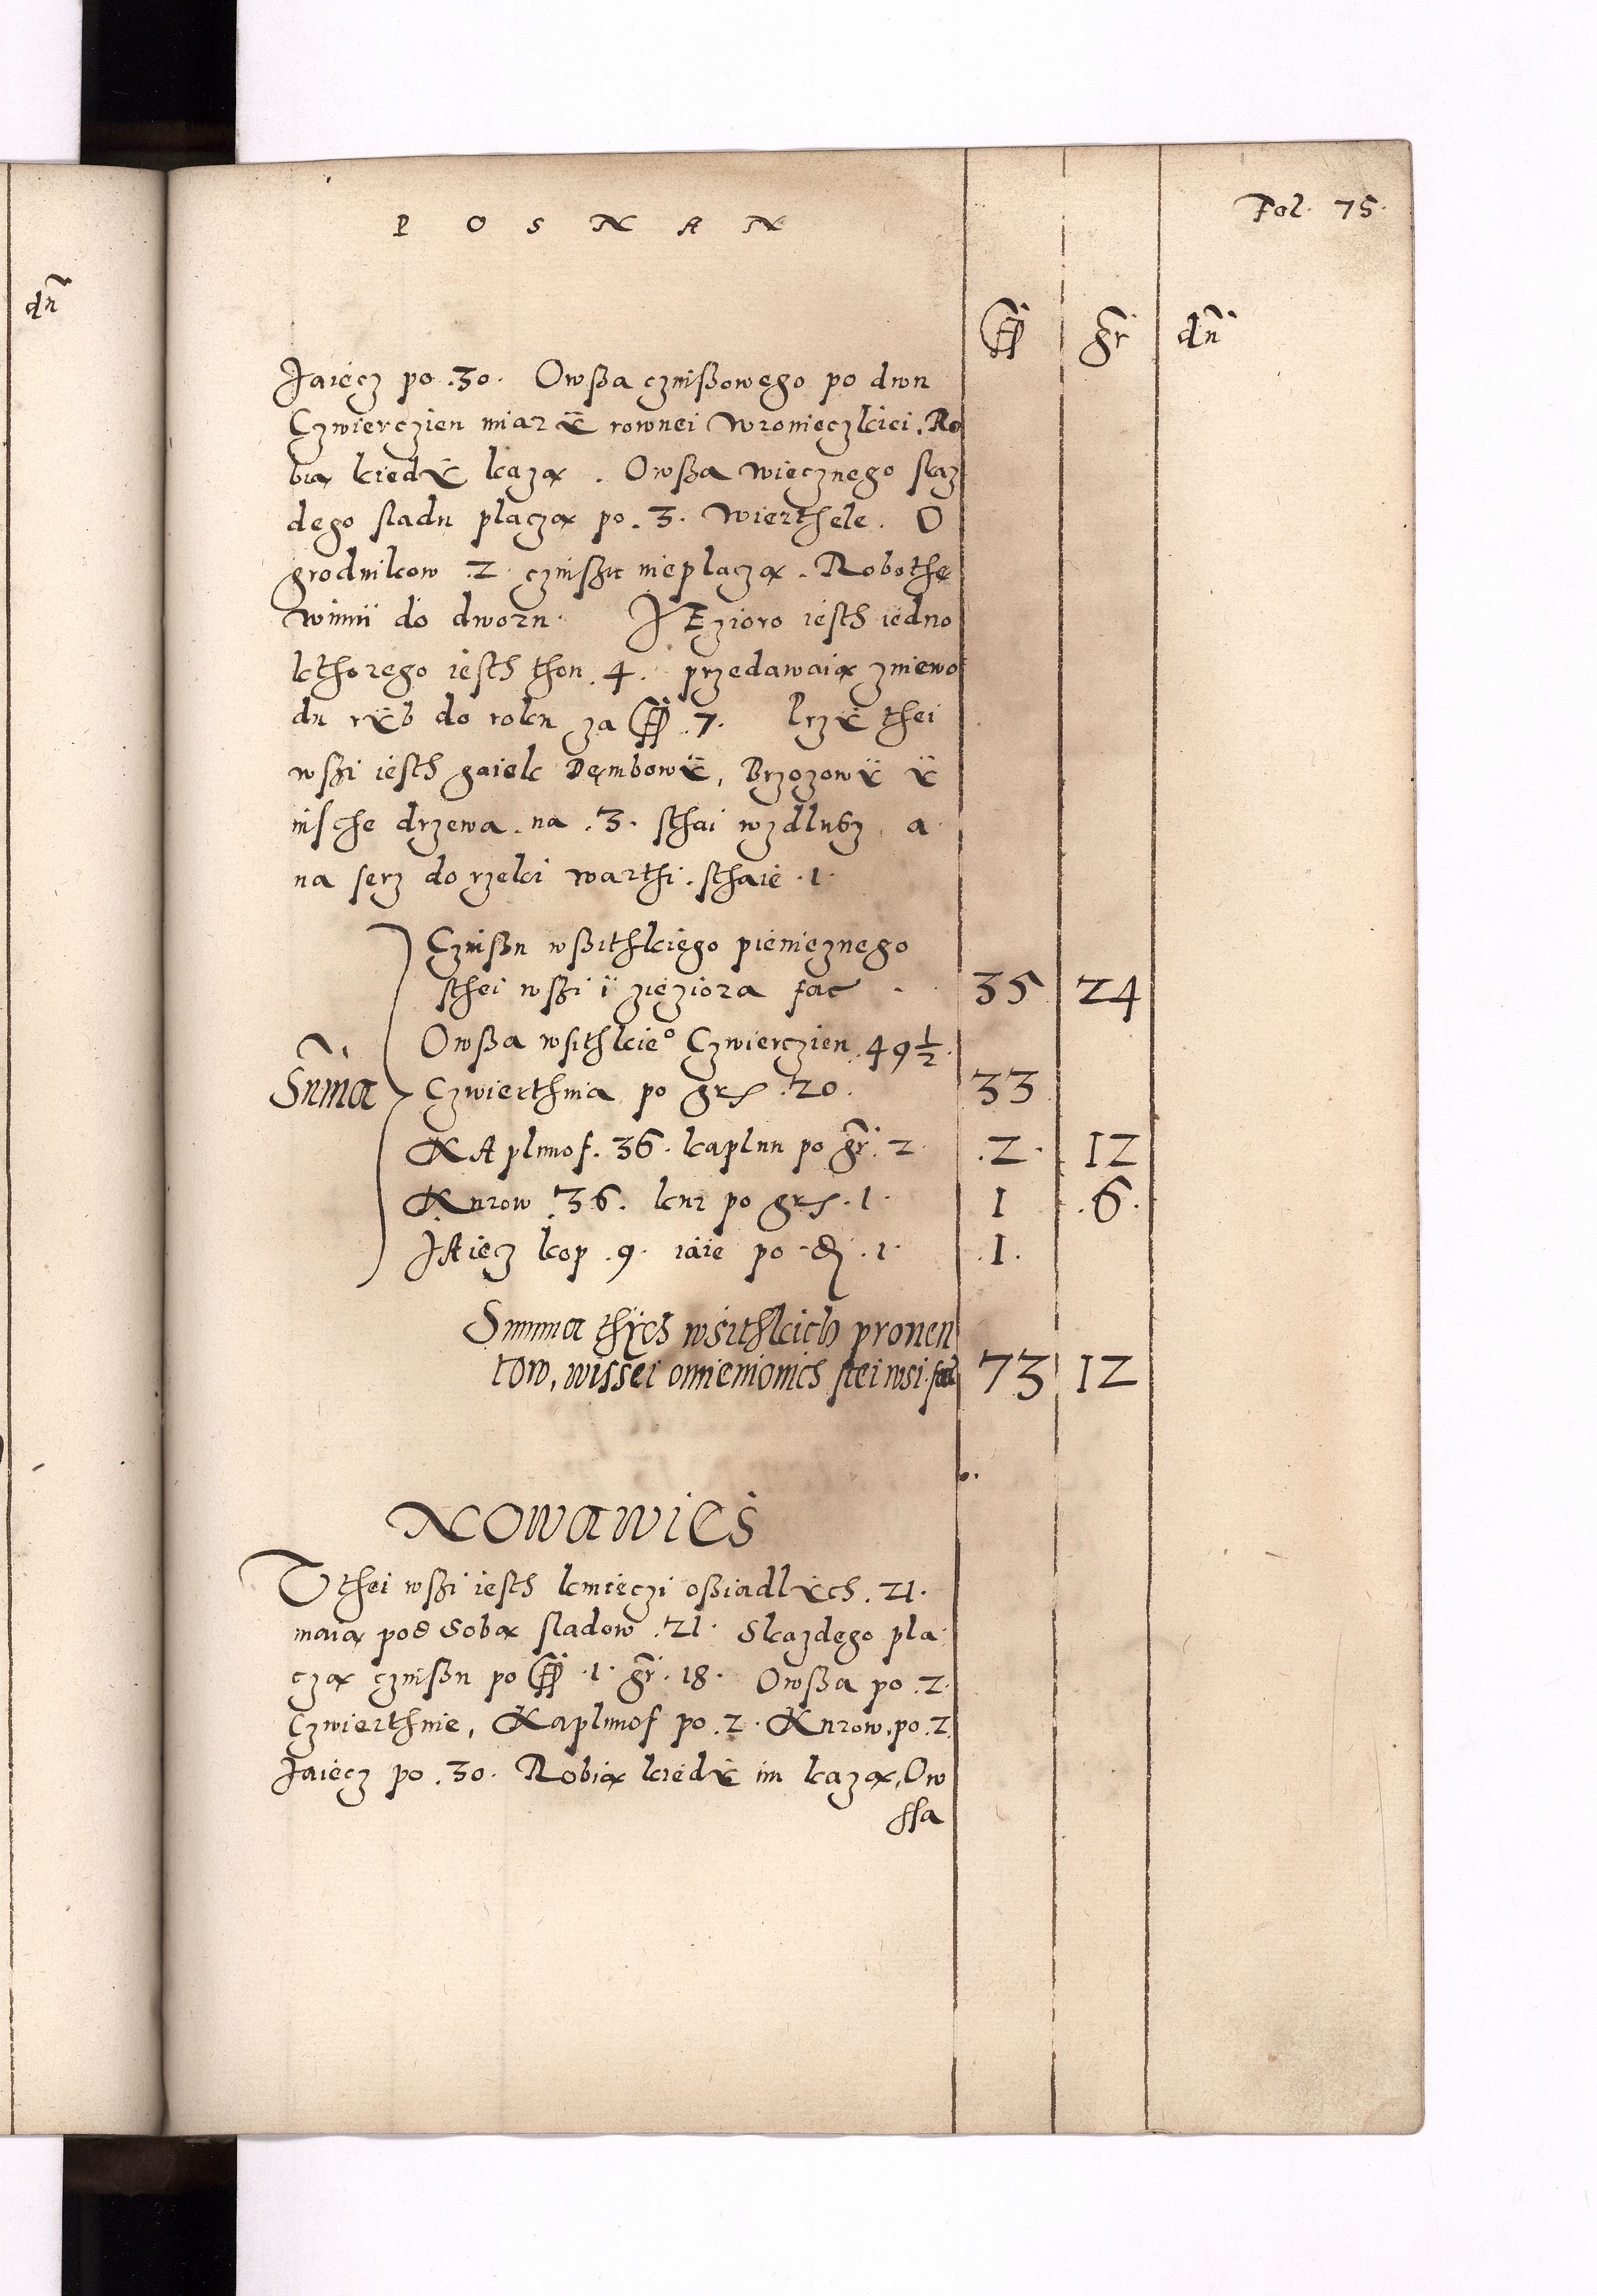 dñ
P O S N A N
Fol. 75.
ff gr dñ
Jaiecz po .30. Owßa czinßowego po dwu
Czwierczien miarÿ rownei wronieczkiei. Ro
bią kiedÿ kazą. Owßa wiecznego skaz
dego sladu placzą po .3. wierthele. O
grodnikow .2. czinßu nieplaczą. Robothę
winni do dworu. JEzioro iesth iedno
kthorego iesth thon .4. przedawaią zniewo
du rÿb do roku za ff .7. Przÿ thei
wßi iesth gaiek Dęmbowÿ, Brzozowÿ ÿ
insche drzewa na .3. sthai wzdlusz, a
na serz do rzeki warthi. sthaie .1.
Suma
Czinßu wßithkiego pienięznego
sthei wßi i zieziora fac 35 24
Owßa wsithkieº Czwierczien .49 1/2.
Czwierthnia po grs .20. 33
KAplunof. 36. kaplun po gr. 2. .2. 12
Kurow .36. kur po grs .1. 1 .6.
JAiecz kop .9. iaie po ð .1. .1.
Summa thych wsithkich prouen
tow, wissei omienionich stei wsi fac 73 12
NOWAWIES
W thei wßi iesth kmieczi oßiadlÿch .21.
maia pod Sobą sladow .21. Skazdego pla
czą czinßu po ff .1. gr. 18. Owßa po .2.
Czwierthnie, Kaplunof po .2. Kurow. po .2.
Jaiecz po .30. Robią kiedÿ im kazą, Ow
ssa